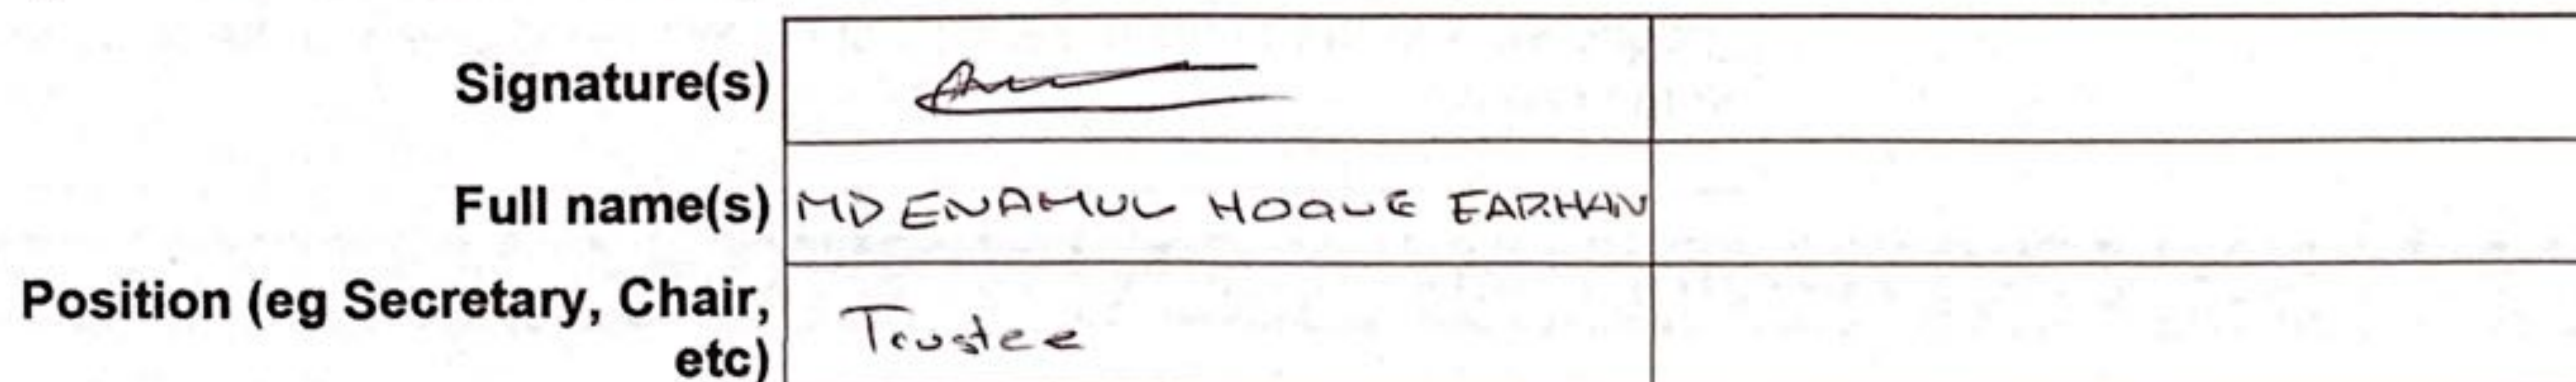 Signature(s)
Full name(s) MD ENAMUL HOQUE FARHAN
Position (eg Secretary, Chair,
etc) Trustee